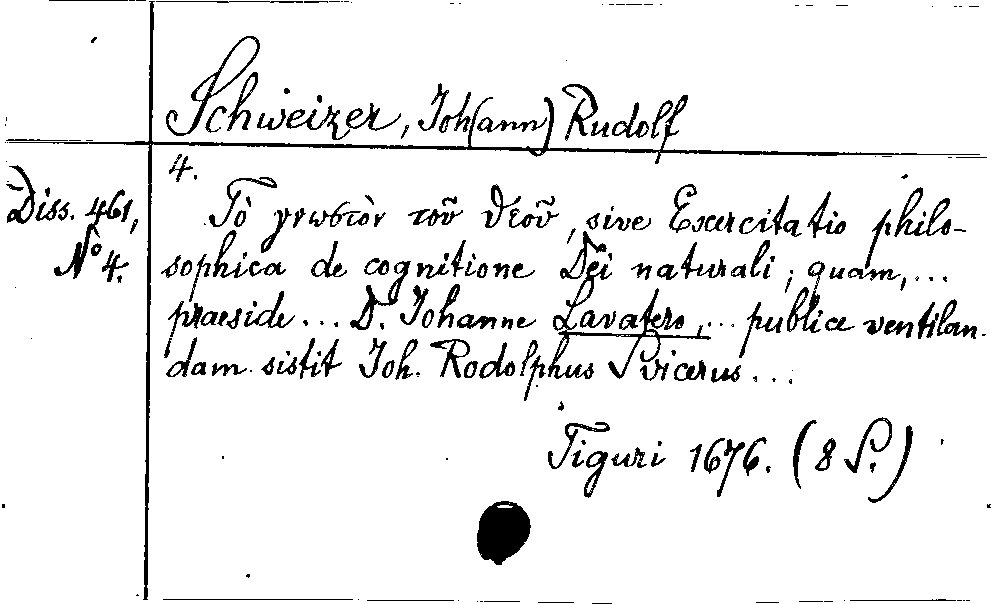 Schweizer, Joh(ann) Rudolf
4.
Diss. 461,
No 4.
Τὸ γνωστὸν τοῦ θεοῦ, sive Exercitatio philo-
sophica de cognitione Dei naturali; quam, ...
praeside ... D. Johanne Lavatero, ... publice ventilan-
dam sistit Joh. Rodolphus Svicerus ...
Tiguri 1676. (8 S.)